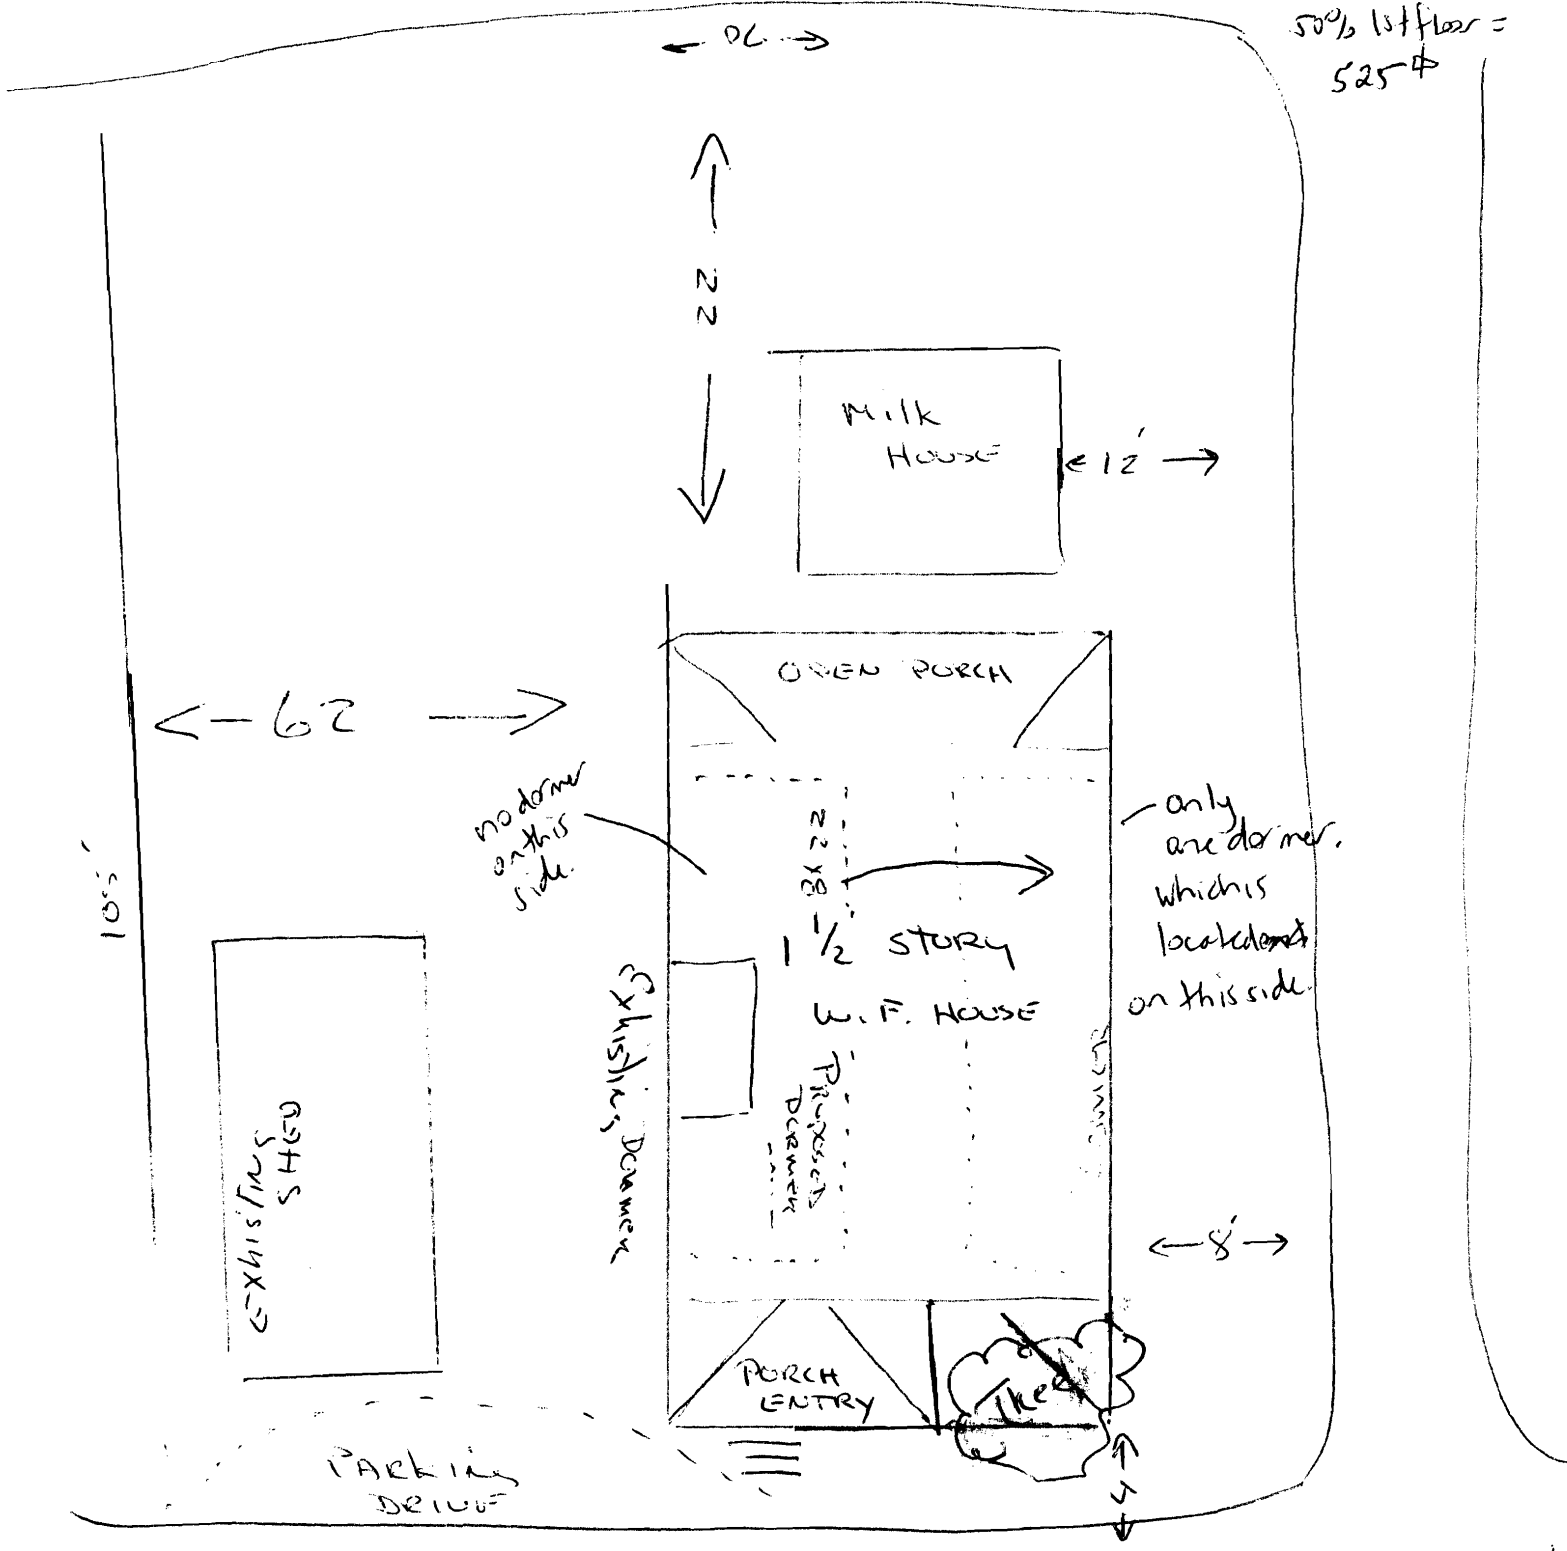 50% 1st floor =
525
22
Milk
HOUSE
12'
OPEN PORCH
62
no dormer
on this
side.
22 x 8
only
one dormer.
which is
located
on this side.
105'
1 1/2 STORY
W.F. HOUSE
Exhisting Dormer
Proposed
Dormer
EXHISTING
SHED
8'
PORCH
ENTRY
Tree
PARKING
DRIVE